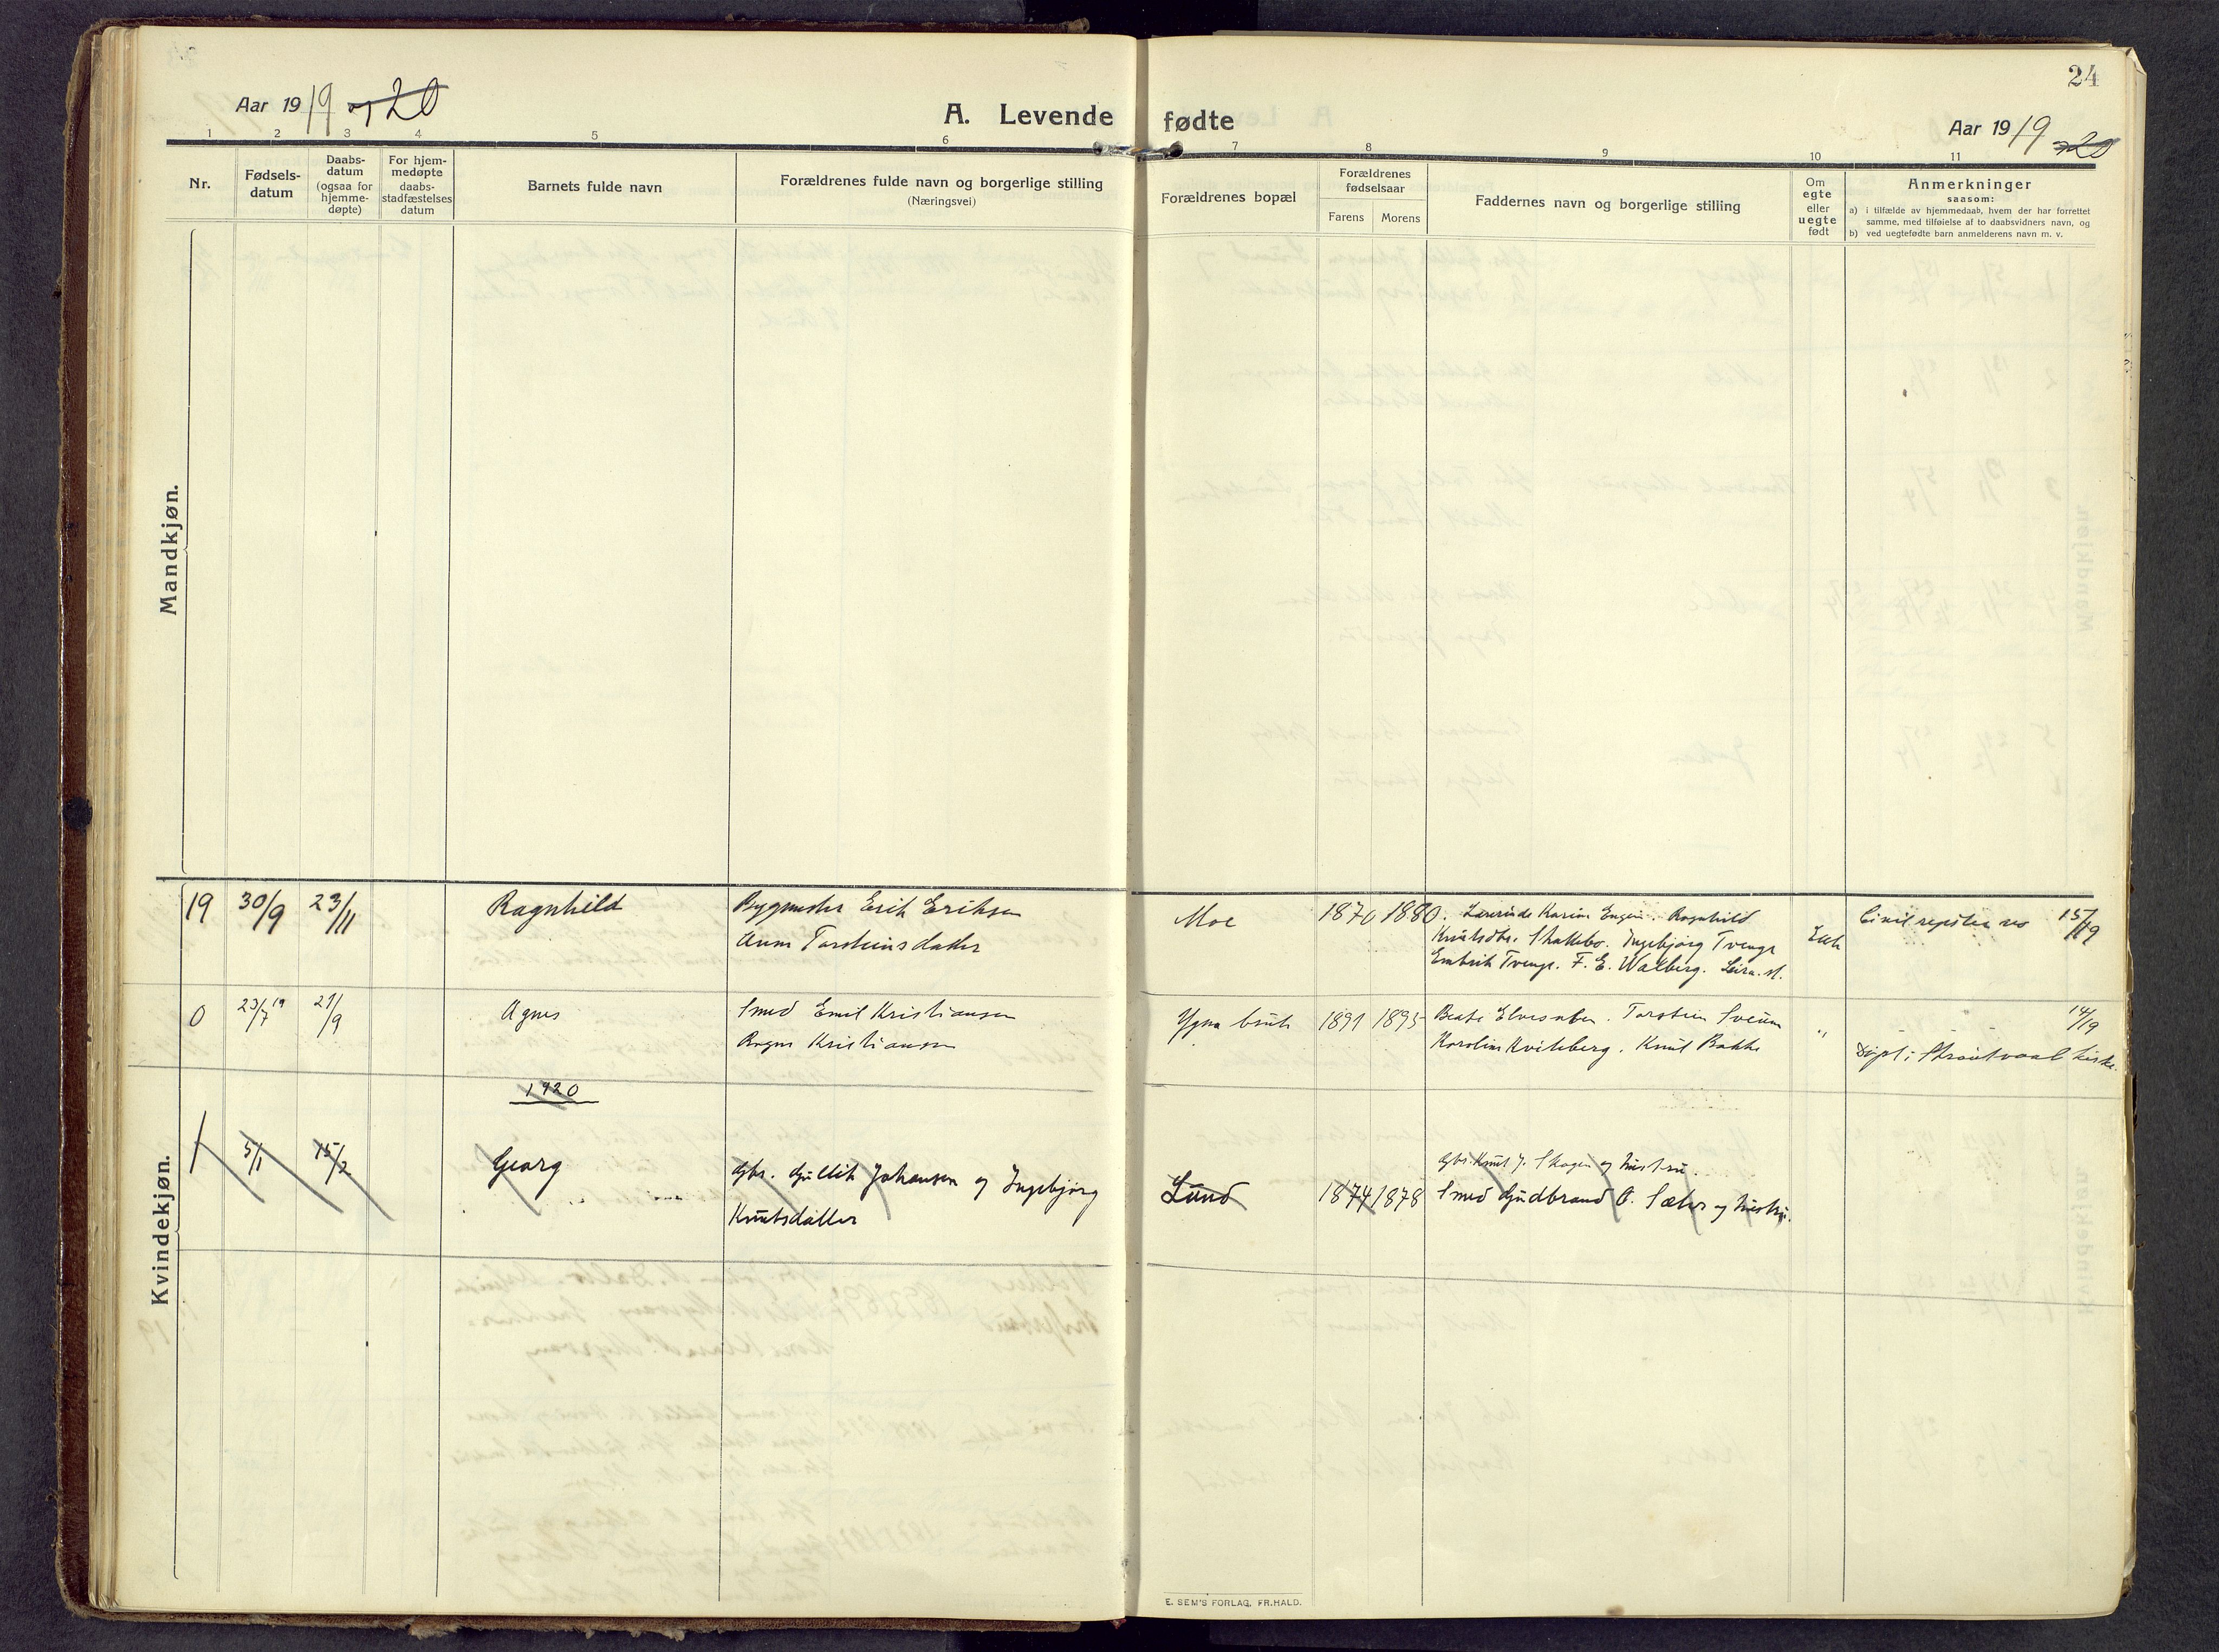 24
Aar 1919 og 20
A. Levende fødte
Aar 1919 og 20
1 2 3 4 5 6 7 8 9 10 11
Nr.
Fødsels-
datum
Daabs-
datum
(ogsaa for
hjemme-
døpte)
For hjem-
medøpte
daabs-
stadfæstelses
datum
Barnets fulde navn
Forældrenes fulde navn og borgerlige stilling
(Næringsvei)
Forældrenes bopæl
Forældrenes
fødselsaar
Farens Morens
Faddernes navn og borgerlige stilling
Om
egte
eller
uegte
født
Anmerkninger
saasom:
a) i tilfælde av hjemmedaab, hvem der har forrettet
samme, med tilføielse af to daabsvidners navn, og
b) ved uegtefødte barn anmelderens navn m. v.
Mandkjøn.
Kvindekjøn.
19 30/9 23/11 Ragnhild
Bygmester Erik Eriksen
Anne Torsteinsdatter
Moe 1870 1880
Lærerinde Karin Engen. Ragnhild
Knutsdtr. Skallebo. Ingebjørg Tvenge
Embrik Tvenge. F. E. Walberg. Leira. st.
Ekte
15/19
0 23/7 19 21/9 Agnes
Smed Emil Kristiansen
Kristiansen
bruk 1891 1895
Torstein Sveum
Karoline Kvileberg. Knut Bakke
"
14/19
Døpt i Skrautvaal kirke.
1920
1 5/1 15/2 Georg
Gbr. Gullik Johansen og Ingebjørg
Knutsdatter
Lund 1874 1878
Gbr. Knut J. Skogen og hustru.
Smed Gudbrand O. Sæter og hustru.
E. SEM'S FORLAG, FR.HALD.